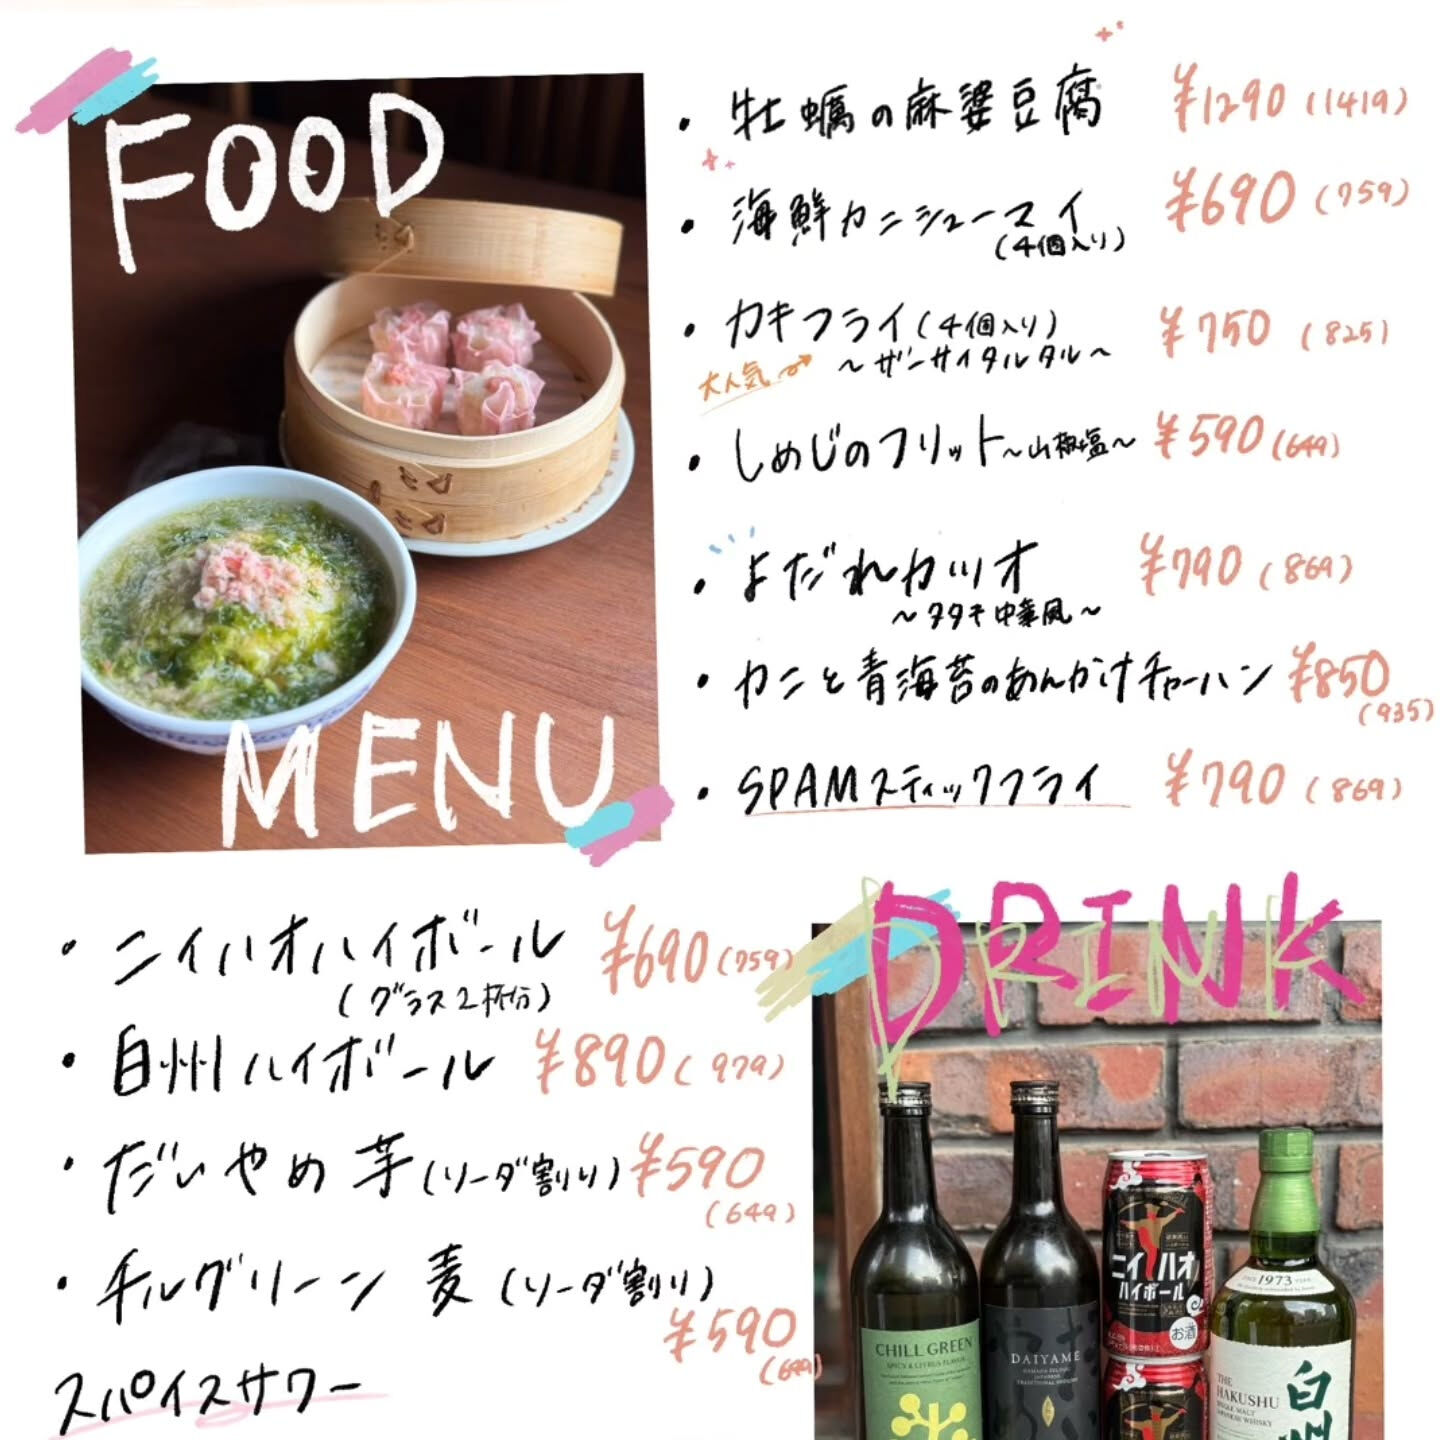 FOOD
MENU
・牡蠣の麻婆豆腐 ¥1290(1419)
・海鮮カニシューマイ ¥690(759)
(4個入り)
・カキフライ(4個入り) ¥750(825)
大人気 〜ザーサイタルタル〜
・しめじのフリット〜山椒塩〜 ¥590(649)
・よだれカツオ ¥790(869)
〜タタキ中華風〜
・カニと青海苔のあんかけチャーハン ¥850
(935)
・SPAMスティックフライ ¥790(869)
DRINK
・ニイハオハイボール ¥690(759)
(グラス2杯分)
・白州ハイボール ¥890(979)
・だいやめ 芋(ソーダ割り) ¥590
(649)
・チルグリーン 麦(ソーダ割り)
¥590
(649)
スパイスサワー
CHILL GREEN
SPICY & CITRUS FLAVOR
DAIYAME
ニイハオ
ハイボール
お酒
SINCE 1973
THE
HAKUSHU
SINGLE MALT
JAPANESE WHISKY
白州